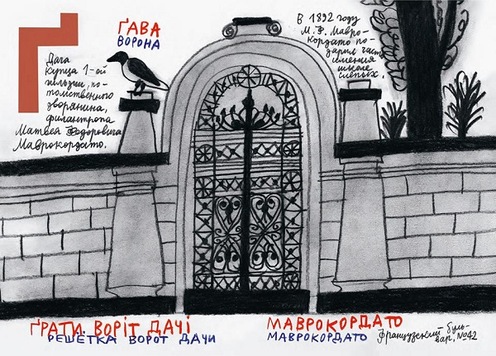 Ґ
ҐАВА
ВОРОНА
Дача
купца 1-ой
гильдии, по-
томственного
дворянина,
филантропа
Матвея Федоровича
Маврокордато.
В 1892 году
М. Ф. Мавро-
кордато по-
дарил часть
имения
школе
слепых.
ҐРАТИ ВОРІТ ДАЧІ
РЕШЕТКА ВОРОТ ДАЧИ
МАВРОКОРДАТО
МАВРОКОРДАТО
Французский буль-
вар, №42